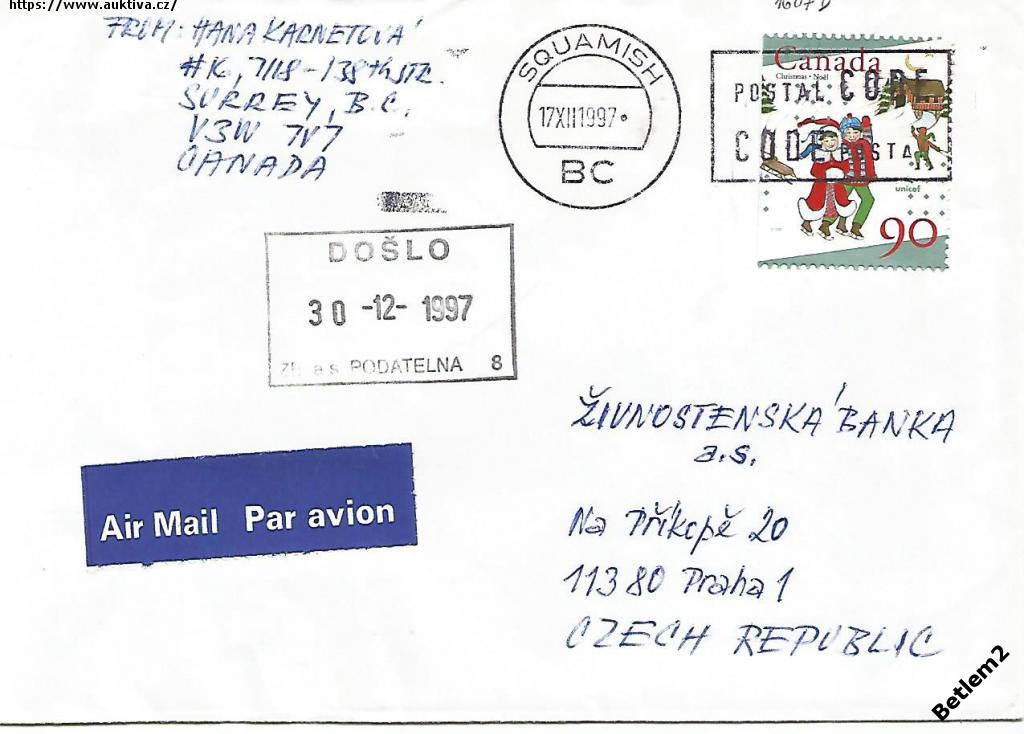 https://www.auktiva.cz/
1607 D
FROM: HANA KARNETOVÁ
#K, 7118-138th STR.
SURREY, B.C.
V3W 7V7
CANADA
SQUAMISH
17XII1997
BC
Canada
Christmas · Noël
POSTAL CODE
CODE POSTAL
unicef
90
DOŠLO
30 -12- 1997
ZB a.s. PODATELNA 8
ŽIVNOSTENSKÁ BANKA
a.s.
Na Příkopě 20
113 80 Praha 1
CZECH REPUBLIC
Air Mail Par avion
Betlem2